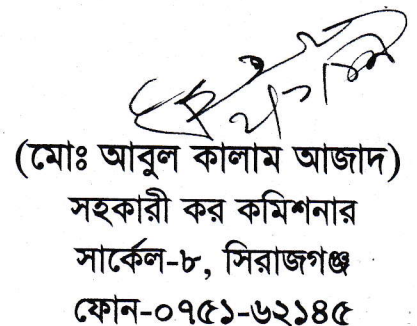 (মোঃ আবুল কালাম আজাদ)
সহকারী কর কমিশনার
সার্কেল-৮, সিরাজগঞ্জ
ফোন-০৭৫১-৬২১৪৫